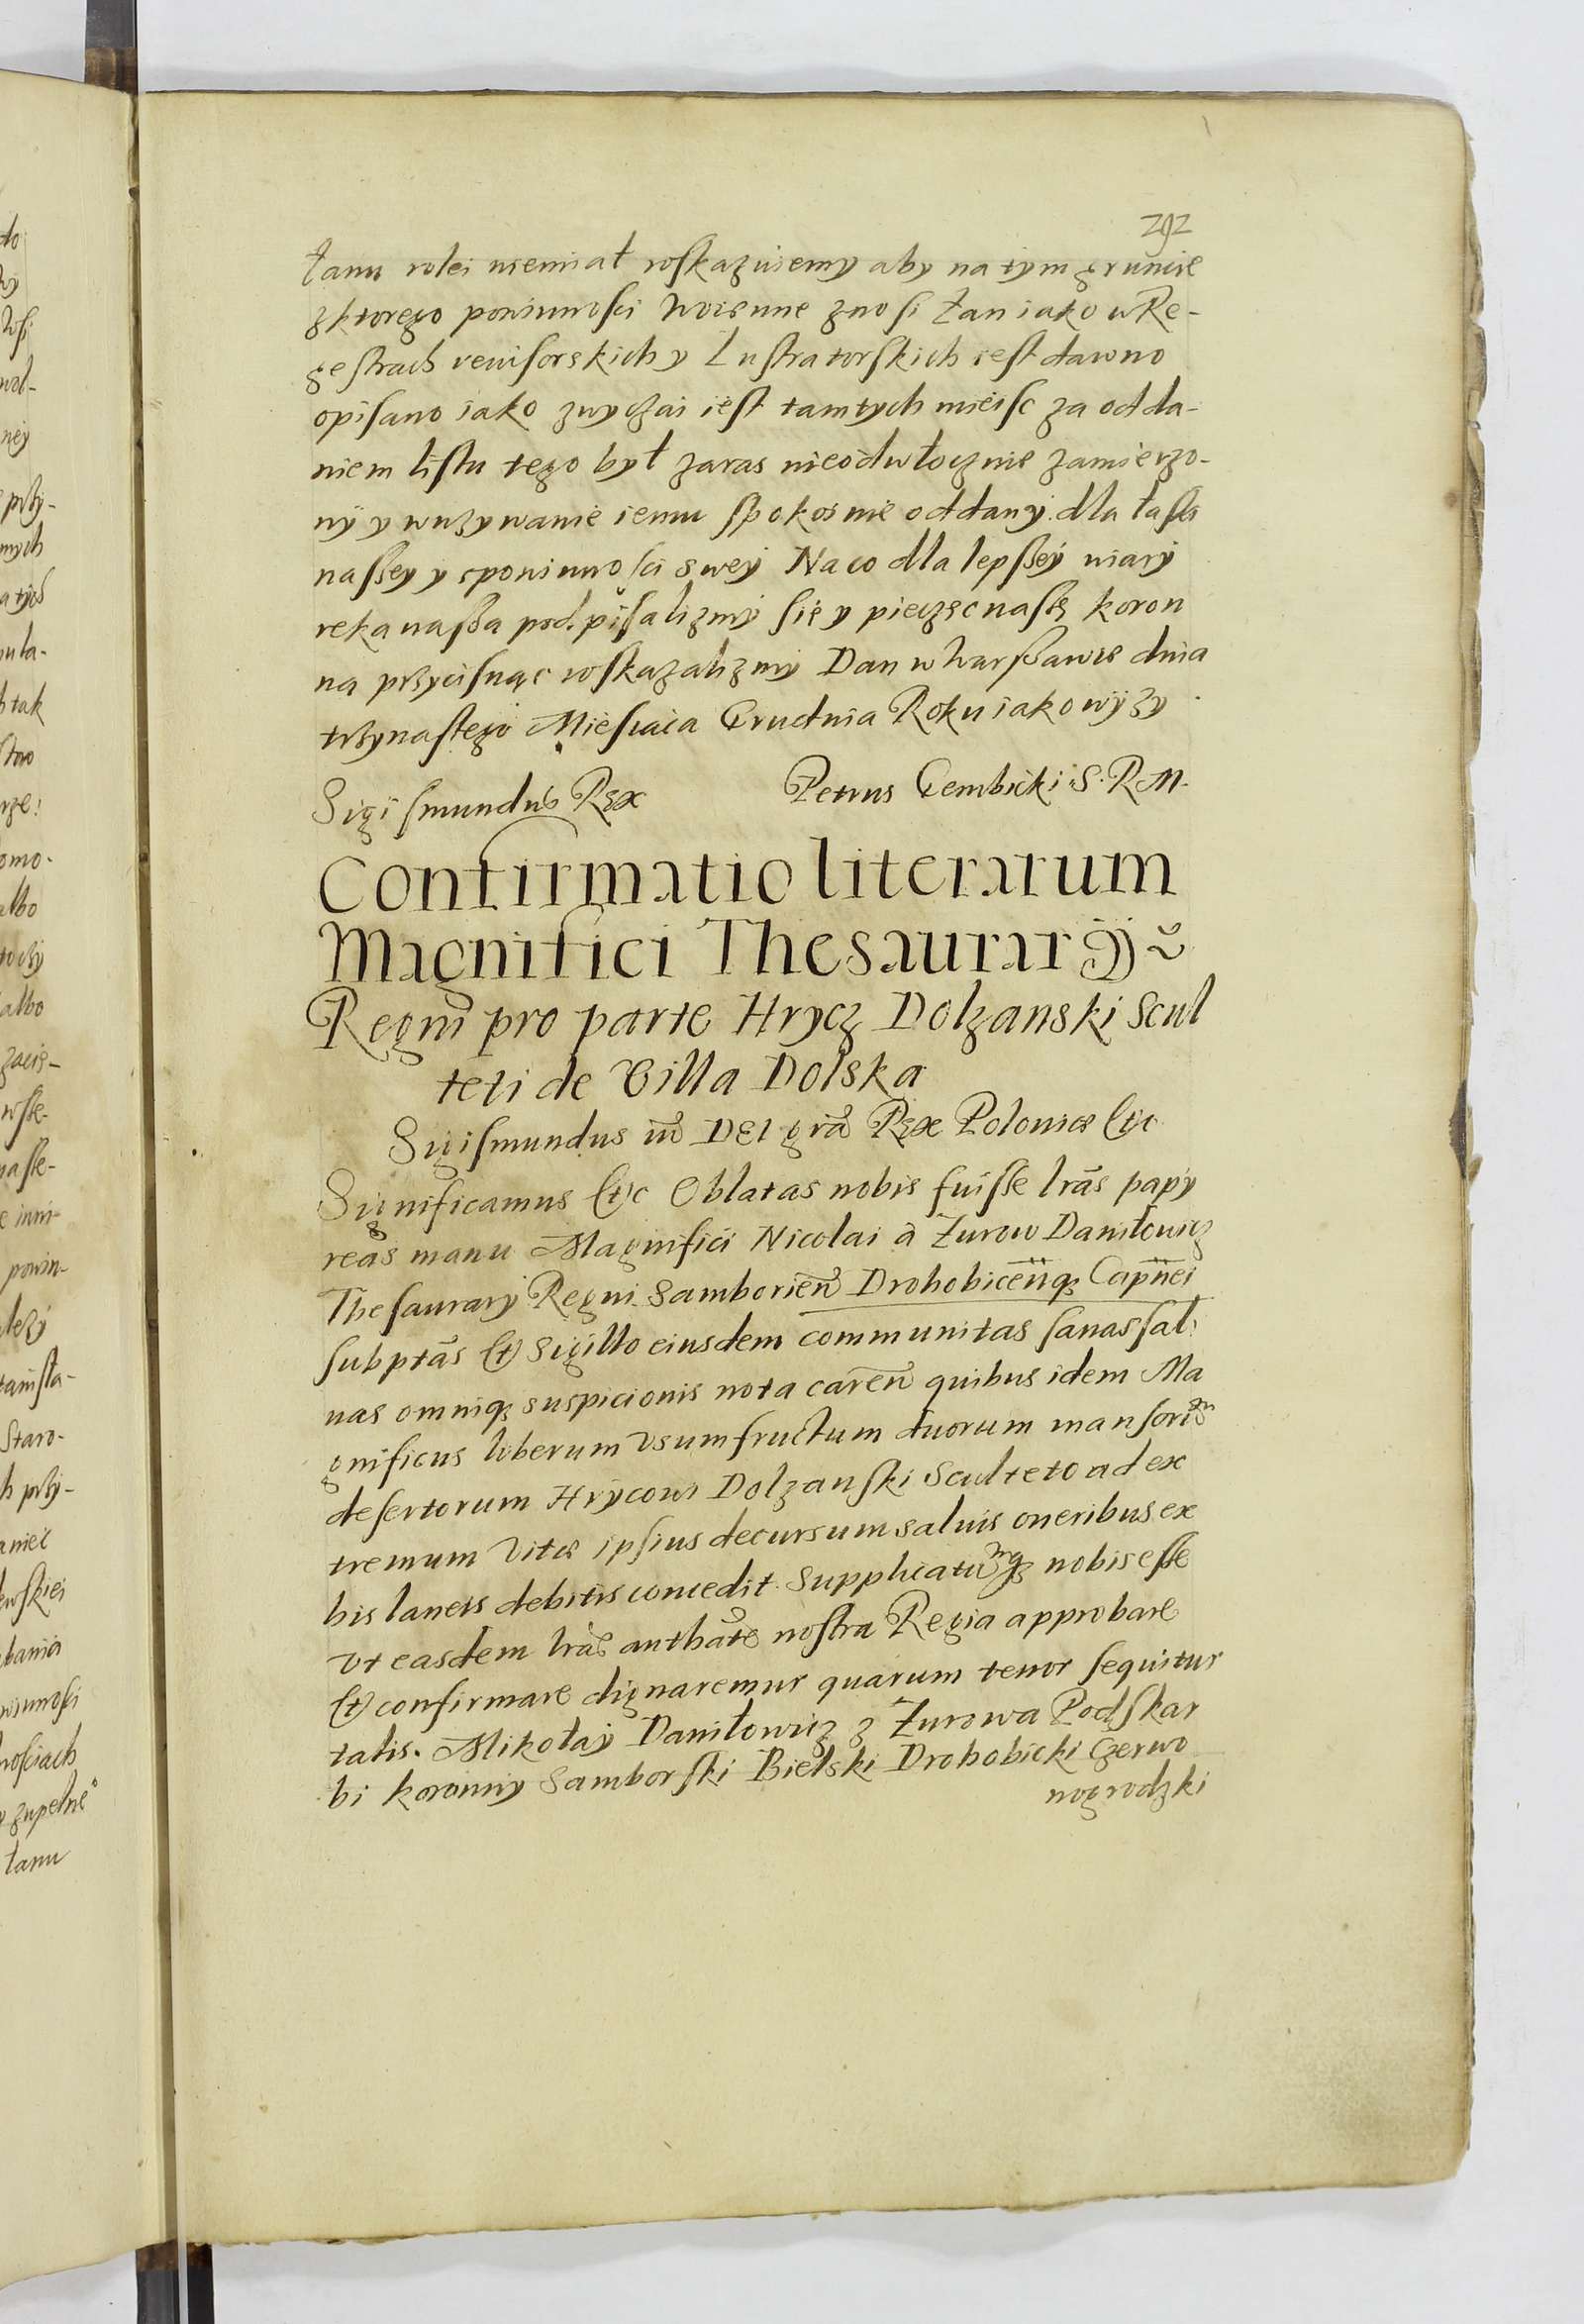 292
łanu rolei niemiał roskazuiemy aby na tym gruncie
z ktorego powinnosci woienne znosi Łan iako w Re-
gestrach reuisorskich y Lustratorskich iest dawno
opisano iako zwyczai iest tamtych mieisc za odda-
niem listu tego był zaras nieodwłocznie zamierzo-
ny y wuzywanie iemu spokoinie oddany. dla łaski
naszey y spowinnosci swey Na co dla lepszey wiary
reka nasza podpisalizmy sie y pieczęc naszę koron
na przycisnąc roskazalizmy Dan w Warszawie dnia
trzynastego Miesiaca Grudnia Roku iako wyzy
Sigismundus Rex Petrus Gembicki S. R. M.
Confirmatio literarum
Magnifici Thesaurarij
Regni pro parte Hrycz Dolzanski Scul
teti de Villa Dolska
Sigismundus iii9 Dei grã Rex Poloniæ etc
Significamus etc Oblatas nobis fuisse lrãs papy
reas manu Magnifici Nicolai à Zurow Daniłowicz
Thesaurarÿ Regni Samborien̄ Drohobicen̄q3 Capn̄ei
subptãs et Sigillo eiusdem communitas sanas sal:
uas omniq3 suspicionis nota caren̄ quibus idem Ma
gnificus liberum vsumfructum duorum mansorũ
desertorum Hrycowi Dolzanski Sculteto ad ex
tremum vitæ ipsius decursum saluis oneribus ex
his laneis debitis concedit. Supplicatumq3 nobis esse
vt easdem lrãs authãte nostra Regia approbare
et confirmare dignaremur quarum tenor sequitur
talis. Mikołay Daniłowicz z Zurowa Podskar
bi koronny Samborski Bielski Drohobicki Czerwo
nogrodzki